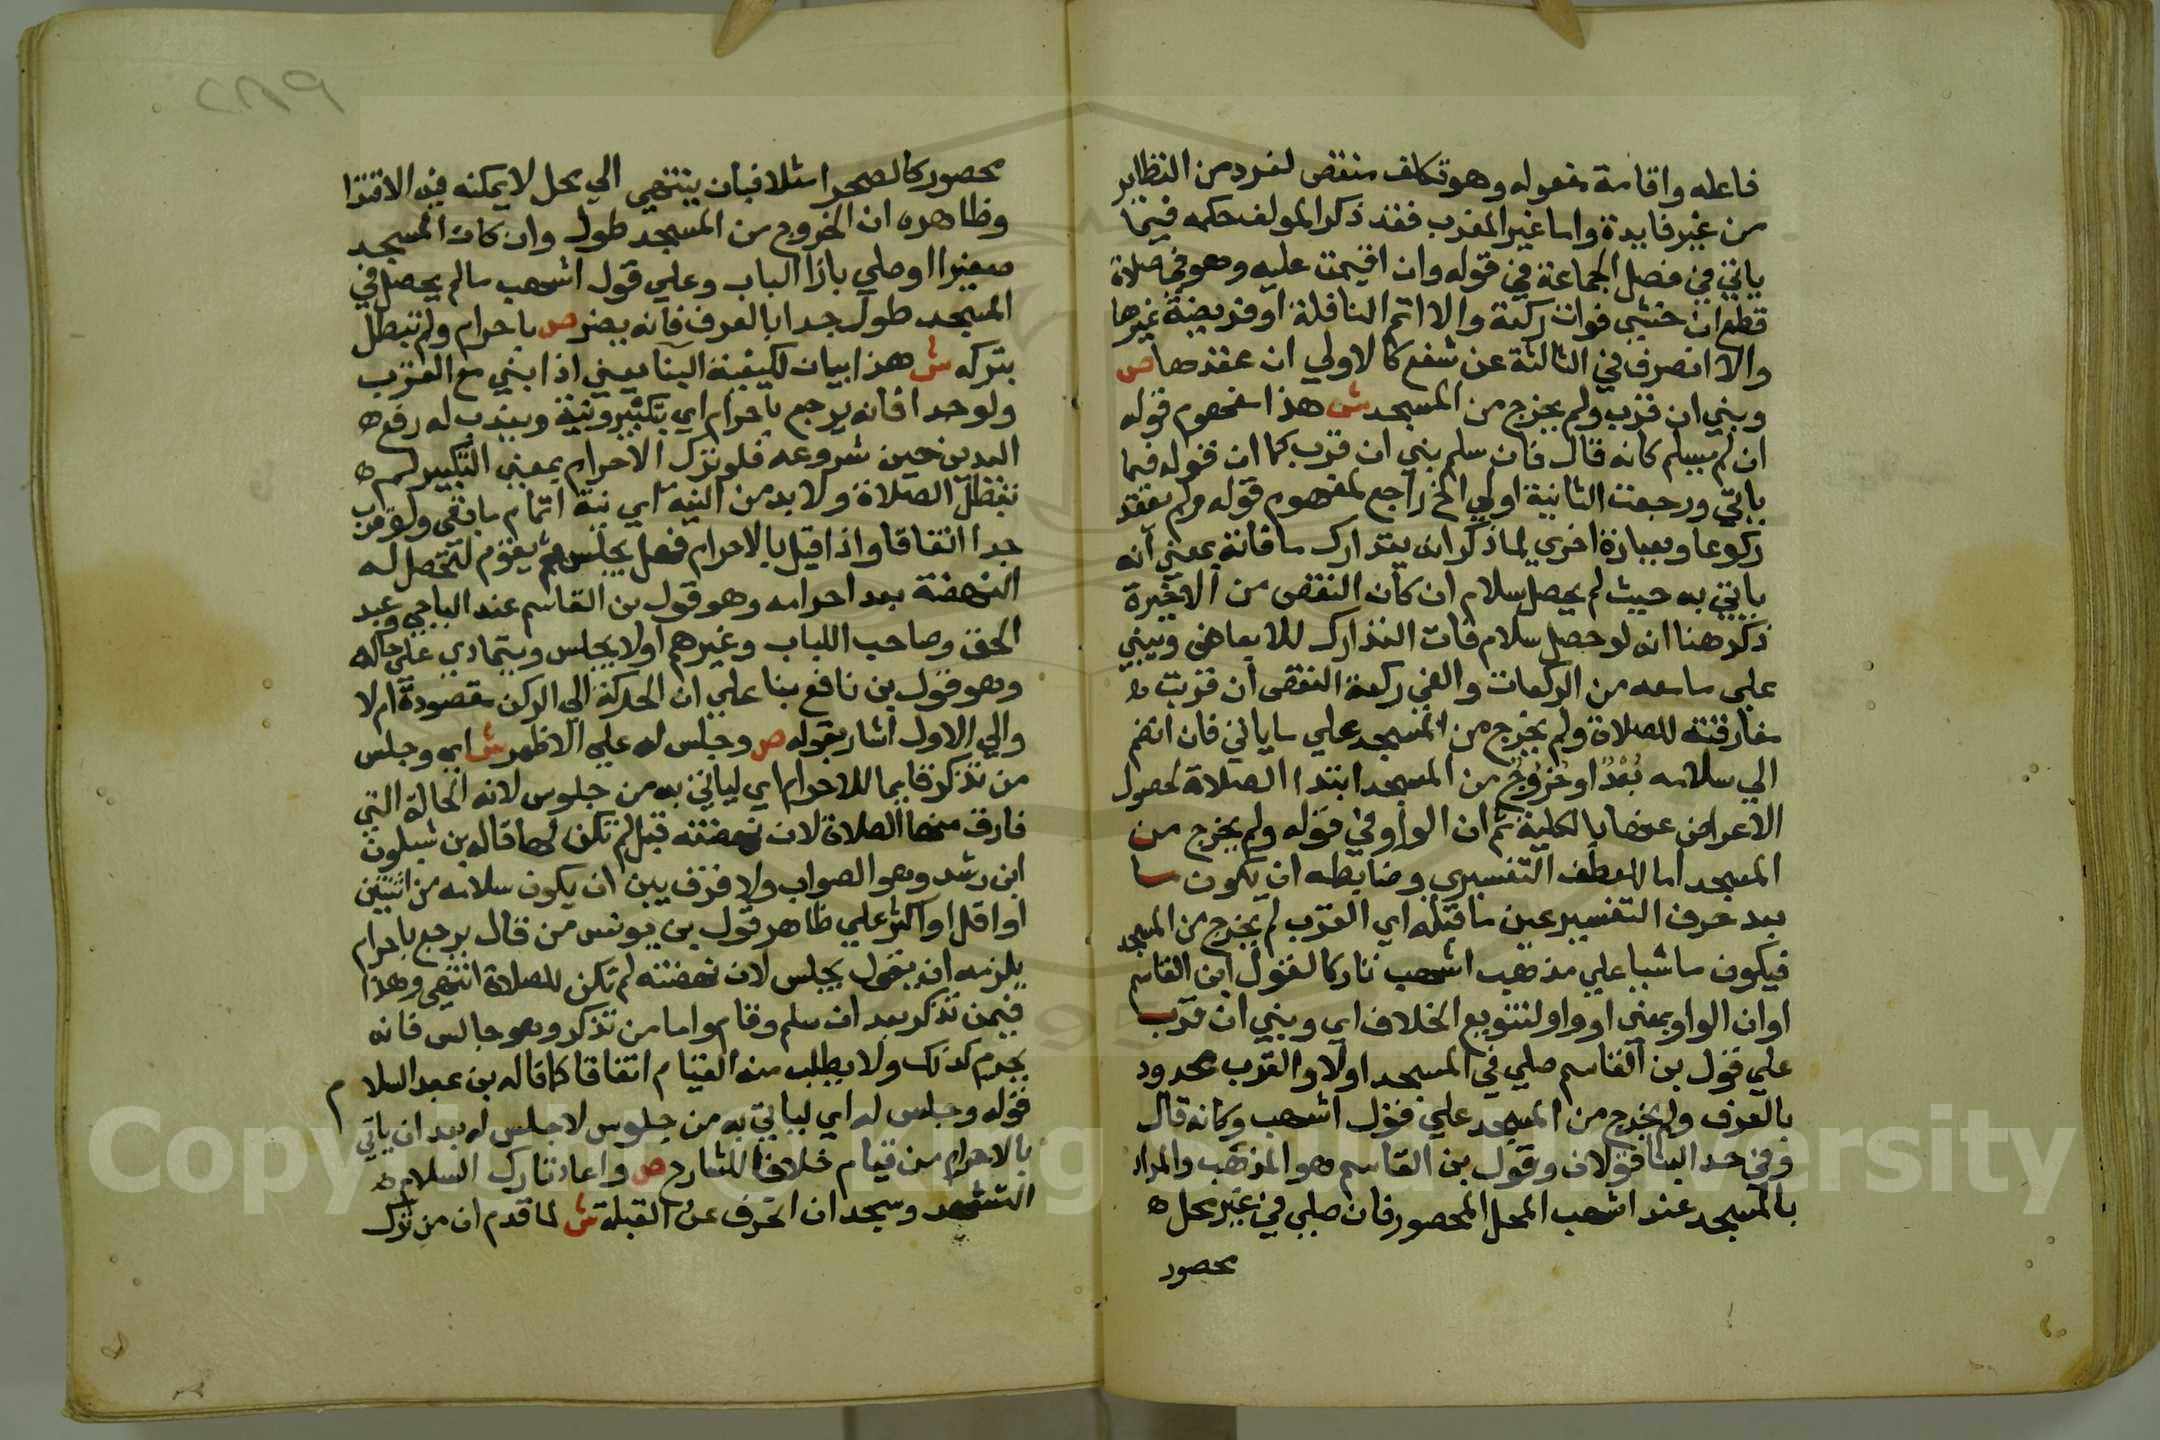 فاعله واقامة مفعوله وهو تكلف منتقض لفرد من النظاير
من غير فايدة واما غير المغرب فقد ذكر المولف حكمه فيما
ياتي في فصل الجماعة في قوله وان اقيمت عليه وهو في صلاة
قطع ان خشي فوات ركعة والا اتم النافلة او فريضة غيرها
والا انصرف في الثالثة عن شفع كالاولي ان عقدها ص
وبني ان قرب ولم يخرج من المسجد ش هذا مفهوم قوله
ان لم يسلم كانه قال فان سلم بني ان قرب كما ان قوله فيما
ياتي ورجعت الثانية اولي الخ راجع لمفهوم قوله ولم يعقد
ركوعا وبعبارة اخري لما ذكر انه يتدارك ما فاته بمعني انه
ياتي به حيث لم يحصل سلام ان كان النقص من الاخيرة
ذكر هنا انه لو حصل سلام فات التدارك للايعاض ويبني
علي ما معه من الركعات والغي ركعة النقص ان قربت
مفارقته للصلاة ولم يخرج من المسجد علي ما ياتي فان انضم
الي سلامه بُعْدٌ او خُرُوجٌ من المسجد ابتدا الصلاة لحصول
الاعراض عنها بالكلية ثم ان الواو في قوله ولم يخرج من
المسجد اما للعطف التفسيري وضابطه ان يكون ما
بعد حرف التفسير عين ما قبله اي القرب لم يخرج من المسجد
فيكون ماشيا علي مذهب اشهب تاركا لقول ابن القاسم
او ان الواو بمعني او واو لتنويع الخلاف اي وبني ان قرب
علي قول بن القاسم صلي في المسجد اولا والقرب محدود
بالعرف ولم يخرج من المسجد علي قول اشهب وكانه قال
وفي حد البنا قولان وقول بن القاسم هو المذهب والمراد
بالمسجد عند اشهب المحل المحصور فان صلي في غير محل
محصور
محصور كالصحرا مثلا فبان ينتهي الي محل لا يمكنه فيه الاقتدا
وظاهره ان الخروج من المسجد طول وان كان المسجد
صغيرا او صلي بازا الباب وعلي قول اشهب ما لم يحصل في
المسجد طول جدا بالعرف فانه يضر ص باحرام ولم تبطل
بتركه ش هذا بيان لكيفية البنا يعني اذا بني مع القرب
ولو جدا فانه يرجع باحرام اي بتكبير ونية ويندب له رفع
اليدين حين شروعه فلو ترك الاحرام بمعني التكبير لم
تبطل الصلاة ولا بد من النية اي نية اتمام ما بقي ولو قرب
جدا اتفاقا واذا قيل بالاحرام فهل يجلس ثم يقوم لتحصل له
النهضة بعد احرامه وهو قول بن القاسم عند الباجي وعبد
الحق وصاحب اللباب وغيرهم اولا يجلس ويتمادي علي حاله
وهو قول بن نافع بنا علي ان الحركة الي الركن مقصودة ام لا
والي الاول اشار بقوله ص وجلس له علي الاظهر ش اي وجلس
من تذكر قايما للاحرام اي لياتي به من جلوس لانه الحالة التي
فارق منها الصلاة لان نهضته قبل لم تكن لها قاله بن شبلون
ابن رشد وهو الصواب ولا فرق بين ان يكون سلامه من اثنتين
او اقل او اكثر علي ظاهر قول بن يونس من قال يرجع باحرام
يلزمه ان يقول يجلس لان نهضته لم تكن للصلاة انتهي وهذا
فيمن تذكر بعد ان سلم وقام واما من تذكر وهو جالس فانه
يحرم كذلك ولا يطلب منه القيام اتفاقا كما قاله بن عبد السلام
قوله وجلس له اي لياتي به من جلوس لا جلس له بعد ان ياتي
بالاحرام من قيام خلافا للشارح ص واعاد تارك السلام
التشهد وسجد ان انحرف عن القبلة ش لما قدم ان من ترك
Copyright © King Saud University